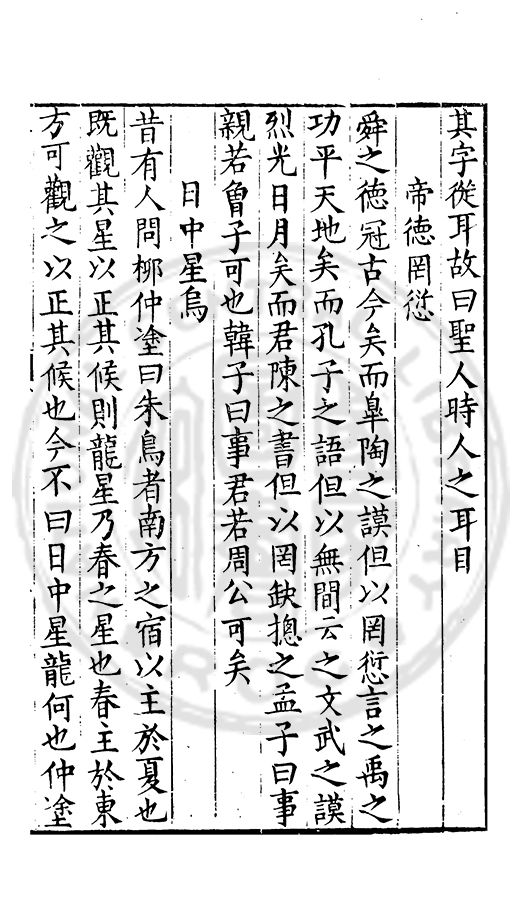 其字從耳故曰聖人時人之耳目
帝徳罔愆
舜之徳冠古今矣而臯陶之謨但以罔愆言之禹之
功平天地矣而孔子之語但以無間云之文武之謨
烈光日月矣而君陳之書但以罔缺揔之孟子曰事
親若曾子可也韓子曰事君若周公可矣
日中星鳥
昔有人問栁仲塗曰朱鳥者南方之宿以主於夏也
既觀其星以正其候則龍星乃春之星也春主於東
方可觀之以正其候也今不曰日中星龍何也仲塗